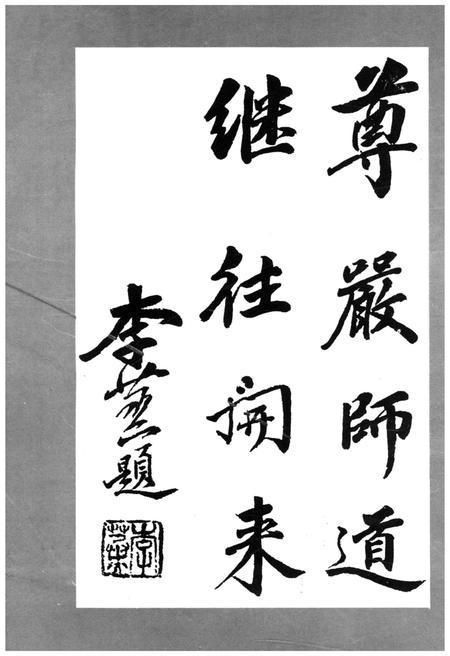 尊嚴師道
继往開来
李 題